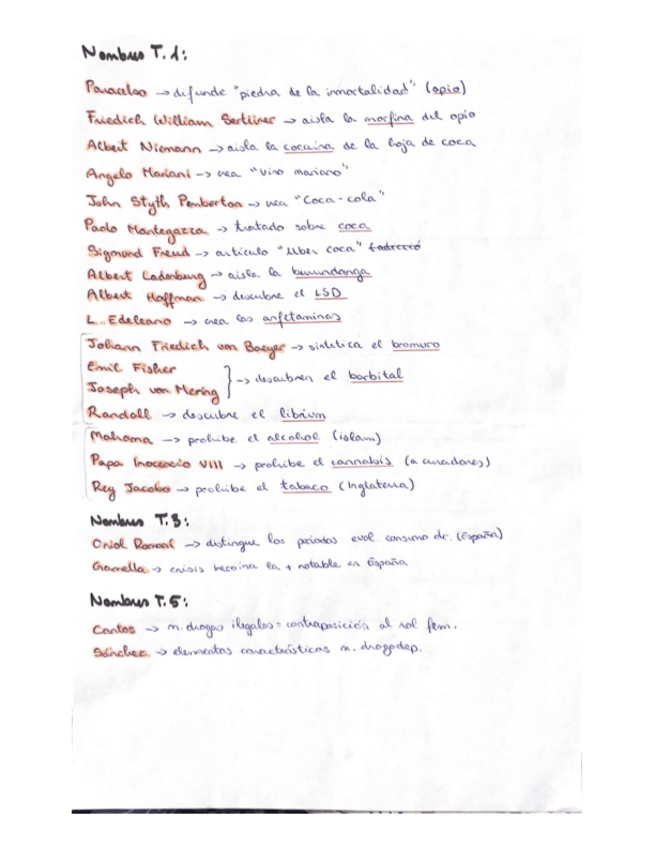 Nombres T.1:
Paracelso → difunde "piedra de la inmortalidad" (opio)
Friedich William Sertüner → aisla la morfina del opio
Albert Niemann → aisla la cocaína de la hoja de coca
Angelo Mariani → crea "vino mariano"
John Styth Pemberton → crea "Coca-cola"
Paolo Mantegazza → tratado sobre coca
Sigmund Freud → artículo "Uber coca"
Albert Ladenburg → aisla la burundanga
Albert Hoffman → descubre el LSD
L. Edeleano → crea las anfetaminas
Johann Friedich von Baeyer → sintetica el bromuro
Emil Fisher
Joseph von Mering } → descubren el barbital
Randall → descubre el librium
Mahoma → prohibe el alcohol (islam)
Papa Inocencio VIII → prohibe el cannabis (a curadores)
Rey Jacobo → prohibe el tabaco (Inglaterra)
Nombres T.3:
Oriol Romaní → distingue los periodos evol consumo dr. (España)
Gamella → crisis heroína la + notable en España
Nombres T.5:
Cantos → m. drogas ilegales = contraposición al rol fem.
Sánchez → elementos característicos m. drogodep.